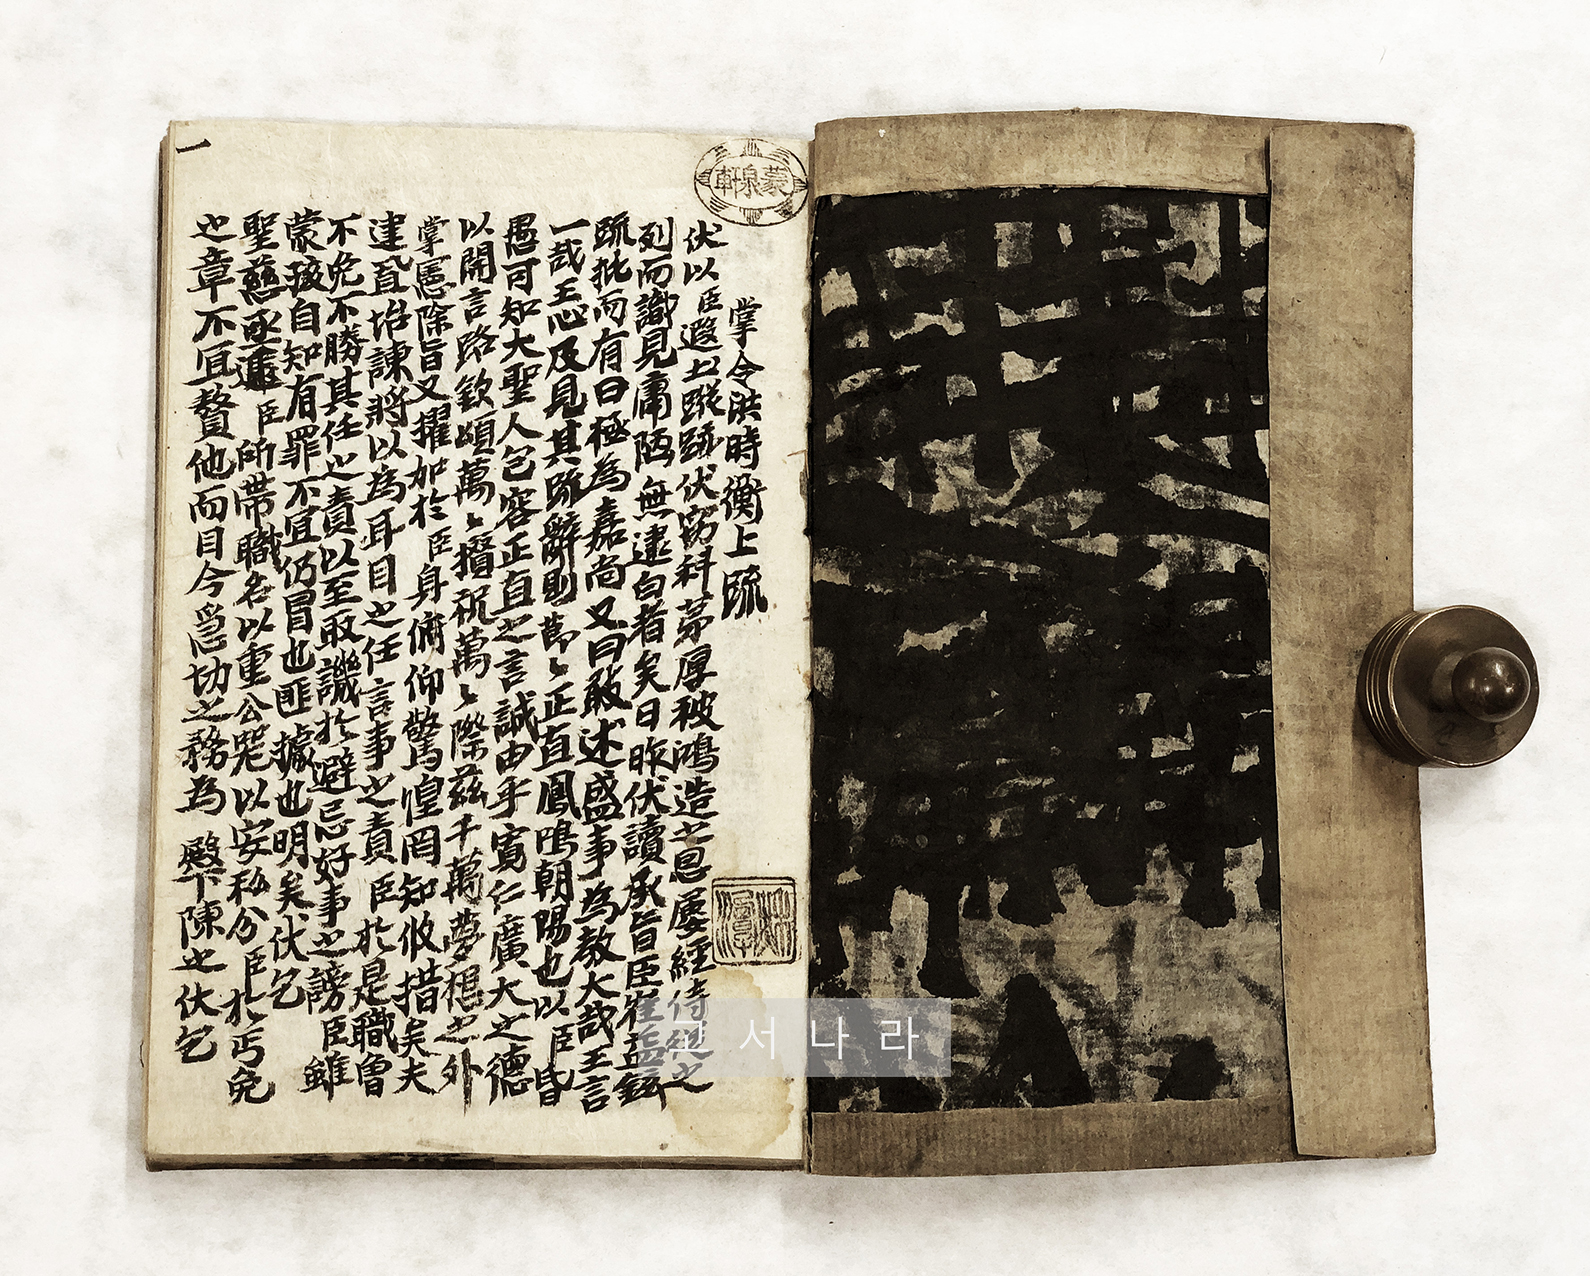 掌令洪時衡上疏
伏以臣遐土蹤跡伏窃科第厚被鴻造之恩屡経侍從之
列而識見庸陋無逮白者矣日昨伏讀承旨臣崔益鉉
疏批而有曰極為嘉尚又曰敢述盛事為教大哉王言
一哉王心及見其疏辭則節〻正直鳳鳴朝陽也以臣昏
愚可知大聖人包容正直之言誠由乎寛仁廣大之德
以開言路欽頌萬〻攢祝萬〻際茲千萬夢想之外
掌憲除旨又擢加於臣身俯仰驚惶罔知攸措矣夫
建置坮諫将以為耳目之任言事之責臣於是職曾
不免不勝其任之責以至取譏於避忌好事之謗臣雖
蒙騃自知有罪不宜仍冒也匪據也明矣伏乞
聖慈亟逓臣所帶職名以重公器以安私分臣於丐免
之章不宜贅他而目今急切之務為 殿下陳之伏乞
一
蒙泉軒
고서나라